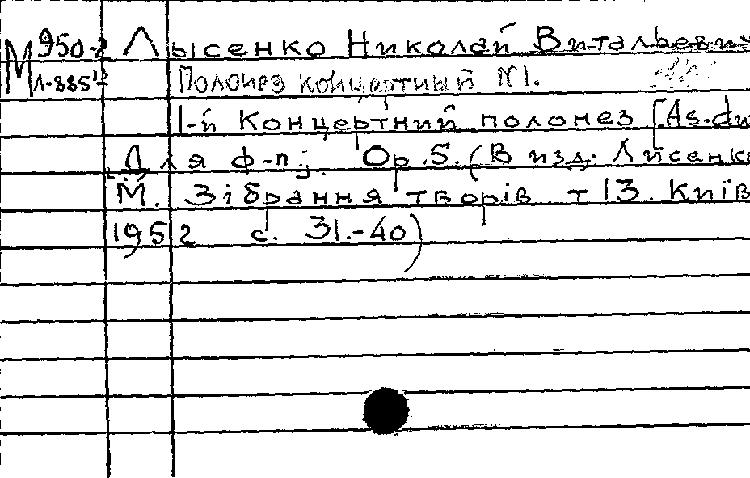 М 950-2 Лысенко Николай Витальевич
Л-885 Полонез концертный №1.
1-й Концертний полонез [As.du
Для ф-п. Op.5. (В изд: Лисенко
М. Зібрання творів т 13. Київ
1952 с. 31.-40)